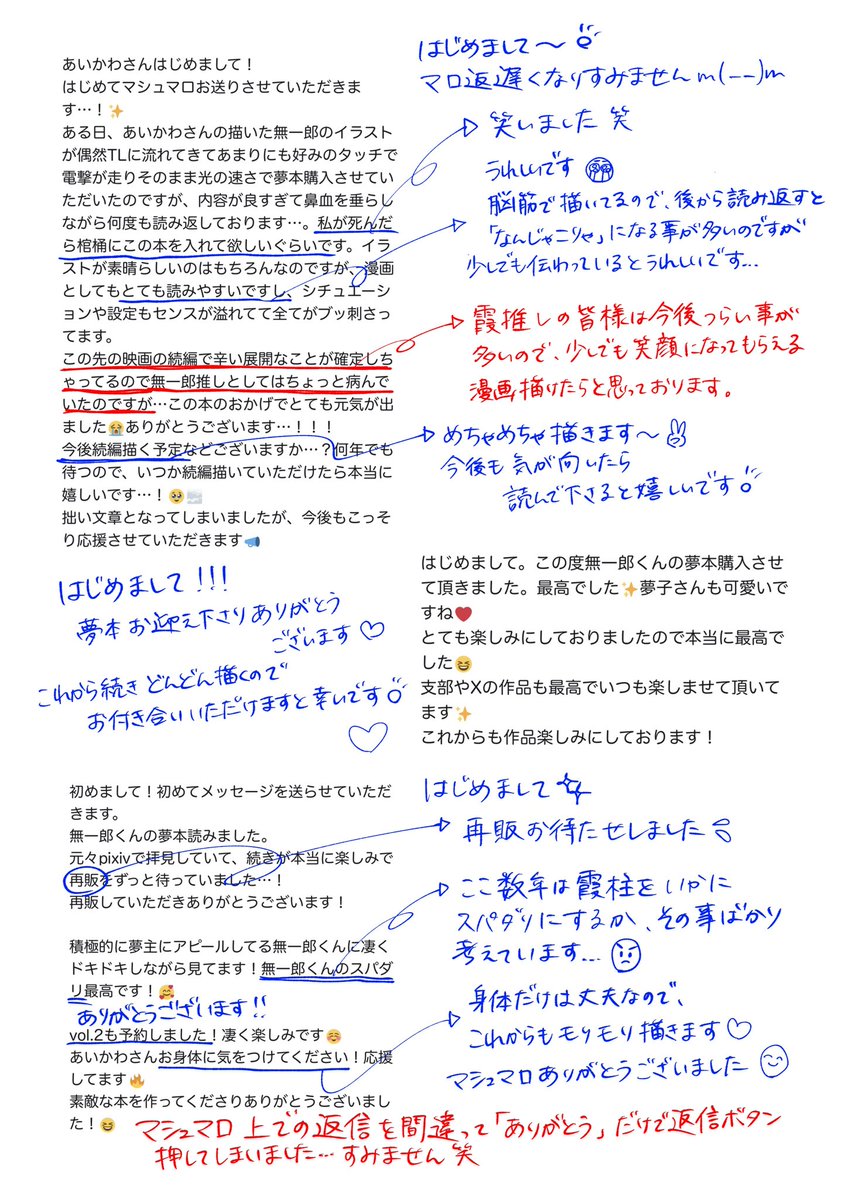 あいかわさんはじめまして！
はじめてマシュマロお送りさせていただきま
す…！✨
ある日、あいかわさんの描いた無一郎のイラスト
が偶然TLに流れてきてあまりにも好みのタッチで
電撃が走りそのまま光の速さで夢本購入させてい
ただいたのですが、内容が良すぎて鼻血を垂らし
ながら何度も読み返しております…。私が死んだ
ら棺桶にこの本を入れて欲しいぐらいです。イラ
ストが素晴らしいのはもちろんなのですが、漫画
としてもとても読みやすいですし、シチュエーシ
ョンや設定もセンスが溢れてて全てがブッ刺さっ
てます。
この先の映画の続編で辛い展開なことが確定しち
ゃってるので無一郎推しとしてはちょっと病んで
いたのですが…この本のおかげでとても元気が出
ました😭ありがとうございます…！！！
今後続編描く予定などございますか…？何年でも
待つので、いつか続編描いていただけたら本当に
嬉しいです…！🥹
拙い文章となってしまいましたが、今後もこっそ
り応援させていただきます📣
はじめまして〜
マロ返遅くなりすみませんm(__)m
笑いました 笑
うれしいです
脳筋で描いてるので、後から読み返すと
「なんじゃこりゃ」になる事が多いのですが
少しでも伝わっているとうれしいです…
霞推しの皆様は今後つらい事が
多いので、少しでも笑顔になってもらえる
漫画描けたらと思っております。
めちゃめちゃ描きます〜
今後も気が向いたら
読んで下さると嬉しいです
はじめまして。この度無一郎くんの夢本購入させ
て頂きました。最高でした✨夢子さんも可愛いで
すね❤
とても楽しみにしておりましたので本当に最高で
した😆
支部やXの作品も最高でいつも楽しませて頂いて
ます✨
これからも作品楽しみにしております！
はじめまして!!!
夢本お迎え下さりありがとう
ございます♡
これから続きどんどん描くので
お付き合いいただけますと幸いです
初めまして！初めてメッセージを送らせていただ
きます。
無一郎くんの夢本読みました。
元々pixivで拝見していて、続きが本当に楽しみで
再販をずっと待っていました…！
再販していただきありがとうございます！
積極的に夢主にアピールしてる無一郎くんに凄く
ドキドキしながら見てます！無一郎くんのスパダ
リ最高です！🥰
ありがとうございます!!
vol.2も予約しました！凄く楽しみです☺️
あいかわさんお身体に気をつけてください！応援
してます🔥
素敵な本を作ってくださりありがとうございまし
た！😆
はじめまして
再販お待たせしました
ここ数年は霞柱をいかに
スパダリにするか、その事ばかり
考えています…
身体だけは丈夫なので、
これからもモリモリ描きます♡
マシュマロありがとうございました
マシュマロ上での返信を間違って「ありがとう」だけで返信ボタン
押してしまいました…すみません 笑